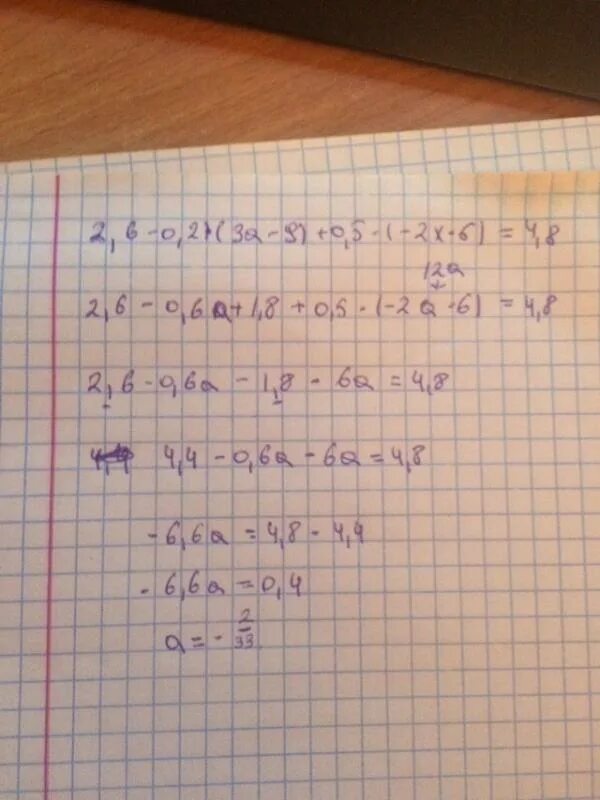 2,6 - 0,2 · (3a - 9) + 0,5 · (-2x · 6) = 4,8
12a
2,6 - 0,6a + 1,8 + 0,5 · (-2a · 6) = 4,8
2,6 - 0,6a - 1,8 - 6a = 4,8
4,4 - 0,6a - 6a = 4,8
-6,6a = 4,8 - 4,4
-6,6a = 0,4
a = - 2/33